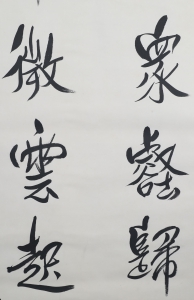 眾壑歸
微雲起